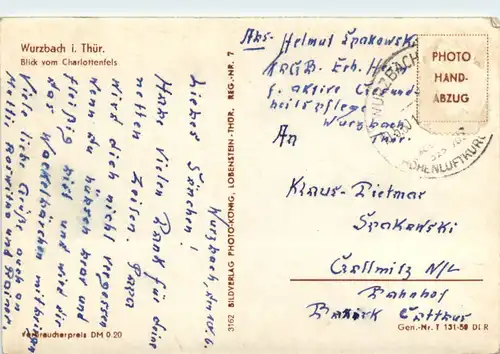 Wurzbach i. Thür.
Blick vom Charlottenfels
Abs- Helmut Spakowski
f. aktive
Wurzbach
Thür.
An
Klaus-Dietmar
Spakowski
Collmitz N/L
Bahnhof
Bezirk Cottbus
PHOTO
HAND-
ABZUG
WURZBACH
HÖHENLUFTKURORT
Wurzbach, den 10.6.
Liebes Söhnchen!
Habe vielen Dank für deine
netten Zeilen. Papa
wird dich nicht vergessen
wenn du hübsch brav und
fleißig bist und wird dir
das
mitbringen
Viele liebe Grüße auch an
3162 BILDVERLAG PHOTO-KÖNIG, LOBENSTEIN-THÜR. REG.-NR. 7
Verbraucherpreis DM 0.20
Gen.-Nr. T 131-59 DI R